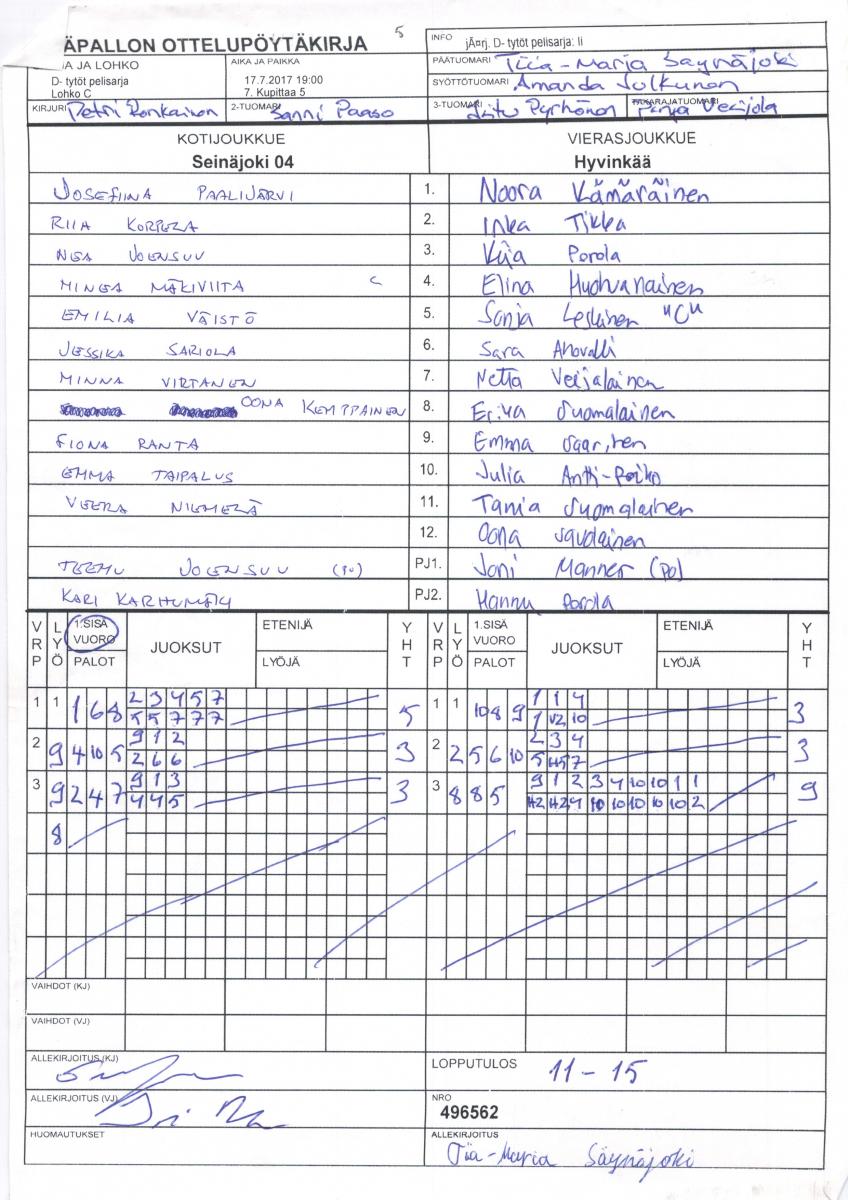 ÄPALLON OTTELUPÖYTÄKIRJA
5
INFO jÄ¤rj. D- tytöt pelisarja: li
A JA LOHKO
D- tytöt pelisarja
Lohko C
AIKA JA PAIKKA
17.7.2017 19:00
7. Kupittaa 5
PÄÄTUOMARI Tiia-Marja Säynäjoki
SYÖTTÖTUOMARI Amanda Julkunen
KIRJURI Petri Ronkainen 2-TUOMARI Sanni Paaso 3-TUOMARI Pyrhönen TAKARAJATUOMARI
KOTIJOUKKUE VIERASJOUKKUE
Seinäjoki 04 Hyvinkää
JOSEFIINA PAALIJÄRVI 1. Noora Kämäräinen
RIIA KORPELA 2. Inka Tikka
NEA JOENSUU 3. Kiia Porola
MINEA MÄKIVIITA C 4. Elina Huohvanainen
EMILIA VÄISTÖ 5. Sonja Leskinen "C"
JESSIKA SARIOLA 6. Sara Ahovalli
MINNA VIRTANEN 7. Netta Veijalainen
OONA KEMPPAINEN 8. Erika Suomalainen
FIONA RANTA 9. Emma Saarinen
EMMA TAIPALUS 10. Julia Antti-Poika
VEERA NIEMELÄ 11. Tania Suomalainen
12. Oona Savolainen
TEEMU JOENSUU (PJ) PJ1. Joni Manner (PO)
KARI KARHUMÄKI PJ2. Hannu Porola
VRP LYÖ 1.SISÄVUORO PALOT JUOKSUT ETENIJÄ LYÖJÄ YHT VRP LYÖ 1.SISÄVUORO PALOT JUOKSUT ETENIJÄ LYÖJÄ YHT
1 1 1 6 8 2 3 4 5 7 5 1 1 10 8 9 1 1 4 3
5 5 7 7 7 1 V2 10
2 9 4 10 5 9 1 2 3 2 2 5 6 10 2 3 4 3
2 6 6 5 H5 7
3 9 2 4 7 9 1 3 3 3 8 8 5 9 1 2 3 4 10 10 1 1 9
4 4 5 H2 H2 4 10 10 10 10 10 2
8
VAIHDOT (KJ)
VAIHDOT (VJ)
ALLEKIRJOITUS (KJ)
LOPPUTULOS 11-15
ALLEKIRJOITUS (VJ)
NRO
496562
HUOMAUTUKSET
ALLEKIRJOITUS
Tiia-Maria Säynäjoki